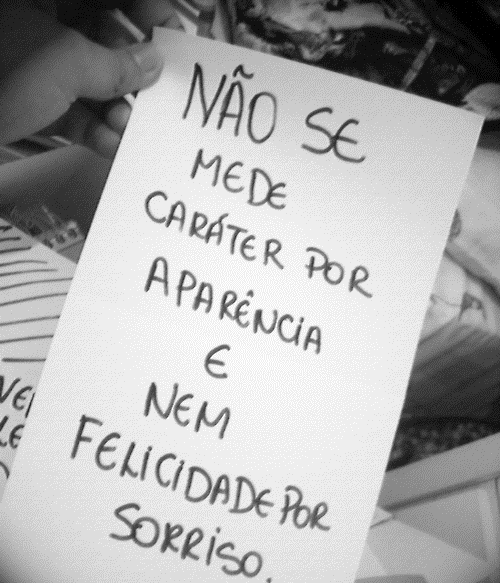 NÃO SE
MEDE
CARÁTER POR
APARÊNCIA
E
NEM
FELICIDADE POR
SORRISO.